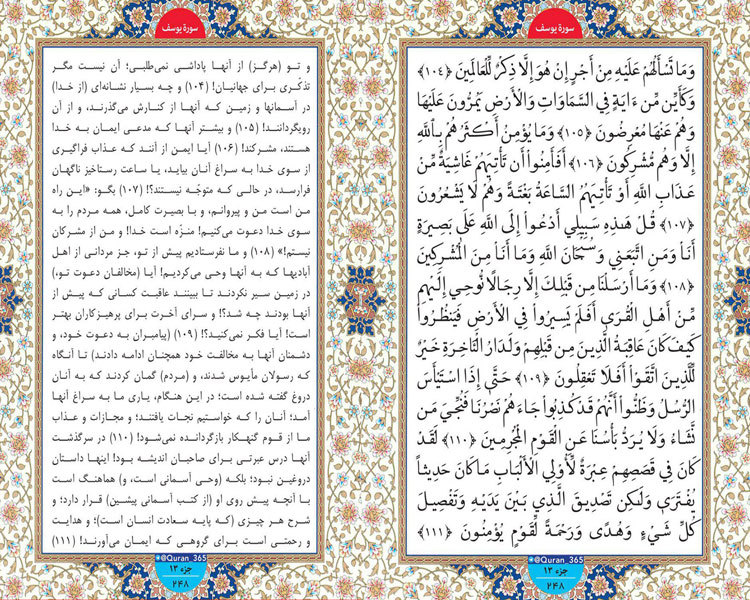 سورهٔ یوسف
وَمَا تَسْأَلُهُمْ عَلَيْهِ مِنْ أَجْرٍ إِنْ هُوَ إِلَّا ذِكْرٌ لِّلْعَالَمِينَ ﴿۱۰۴﴾
وَكَأَيِّن مِّنْ ءَايَةٍ فِي السَّمَاوَاتِ وَالْأَرْضِ يَمُرُّونَ عَلَيْهَا
وَهُمْ عَنْهَا مُعْرِضُونَ ﴿۱۰۵﴾ وَمَا يُؤْمِنُ أَكْثَرُهُم بِاللَّهِ
إِلَّا وَهُم مُّشْرِكُونَ ﴿۱۰۶﴾ أَفَأَمِنُوا أَن تَأْتِيَهُمْ غَاشِيَةٌ مِّنْ
عَذَابِ اللَّهِ أَوْ تَأْتِيَهُمُ السَّاعَةُ بَغْتَةً وَهُمْ لَا يَشْعُرُونَ
﴿۱۰۷﴾ قُلْ هَذِهِ سَبِيلِي أَدْعُوا إِلَى اللَّهِ عَلَى بَصِيرَةٍ
أَنَا وَمَنِ اتَّبَعَنِي وَسُبْحَانَ اللَّهِ وَمَا أَنَا مِنَ الْمُشْرِكِينَ
﴿۱۰۸﴾ وَمَا أَرْسَلْنَا مِن قَبْلِكَ إِلَّا رِجَالًا نُّوحِي إِلَيْهِم
مِّنْ أَهْلِ الْقُرَى أَفَلَمْ يَسِيرُوا فِي الْأَرْضِ فَيَنظُرُوا
كَيْفَ كَانَ عَاقِبَةُ الَّذِينَ مِن قَبْلِهِمْ وَلَدَارُ الْآخِرَةِ خَيْرٌ
لِّلَّذِينَ اتَّقَوْا أَفَلَا تَعْقِلُونَ ﴿۱۰۹﴾ حَتَّى إِذَا اسْتَيْأَسَ
الرُّسُلُ وَظَنُّوا أَنَّهُمْ قَدْ كُذِبُوا جَاءَهُمْ نَصْرُنَا فَنُجِّيَ مَن
نَّشَاءُ وَلَا يُرَدُّ بَأْسُنَا عَنِ الْقَوْمِ الْمُجْرِمِينَ ﴿۱۱۰﴾ لَقَدْ
كَانَ فِي قَصَصِهِمْ عِبْرَةٌ لِّأُولِي الْأَلْبَابِ مَا كَانَ حَدِيثًا
يُفْتَرَى وَلَكِن تَصْدِيقَ الَّذِي بَيْنَ يَدَيْهِ وَتَفْصِيلَ
كُلِّ شَيْءٍ وَهُدًى وَرَحْمَةً لِّقَوْمٍ يُؤْمِنُونَ ﴿۱۱۱﴾
@Quran_365
جزء ۱۳
۲۴۸
سورهٔ یوسف
و تو (هرگز) از آنها پاداشی نمی‌طلبی؛ آن نیست مگر
تذکّری برای جهانیان! (۱۰۴) و چه بسیار نشانه‌ای (از خدا)
در آسمانها و زمین که آنها از کنارش می‌گذرند، و از آن
رویگردانند! (۱۰۵) و بیشتر آنها که مدعی ایمان به خدا
هستند، مشرکند! (۱۰۶) آیا ایمن از آنند که عذاب فراگیری
از سوی خدا به سراغ آنان بیاید، یا ساعت رستاخیز ناگهان
فرارسد، در حالی که متوجّه نیستند؟! (۱۰۷) بگو: «این راه
من است من و پیروانم، و با بصیرت کامل، همه مردم را به
سوی خدا دعوت می‌کنیم! منزّه است خدا! و من از مشرکان
نیستم!» (۱۰۸) و ما نفرستادیم پیش از تو، جز مردانی از اهل
آبادیها که به آنها وحی می‌کردیم! آیا (مخالفان دعوت تو،)
در زمین سیر نکردند تا ببینند عاقبت کسانی که پیش از
آنها بودند چه شد؟! و سرای آخرت برای پرهیزکاران بهتر
است! آیا فکر نمی‌کنید؟! (۱۰۹) (پیامبران به دعوت خود، و
دشمنان آنها به مخالفت خود همچنان ادامه دادند) تا آنگاه
که رسولان مأیوس شدند، و (مردم) گمان کردند که به آنان
دروغ گفته شده است؛ در این هنگام، یاری ما به سراغ آنها
آمد؛ آنان را که خواستیم نجات یافتند؛ و مجازات و عذاب
ما از قوم گنهکار بازگردانده نمی‌شود! (۱۱۰) در سرگذشت
آنها درس عبرتی برای صاحبان اندیشه بود! اینها داستان
دروغین نبود؛ بلکه (وحی آسمانی است، و) هماهنگ است
با آنچه پیش روی او (از کتب آسمانی پیشین) قرار دارد؛ و
شرح هر چیزی (که پایه سعادت انسان است)؛ و هدایت
و رحمتی است برای گروهی که ایمان می‌آورند! (۱۱۱)
@Quran_365
جزء ۱۳
۲۴۸